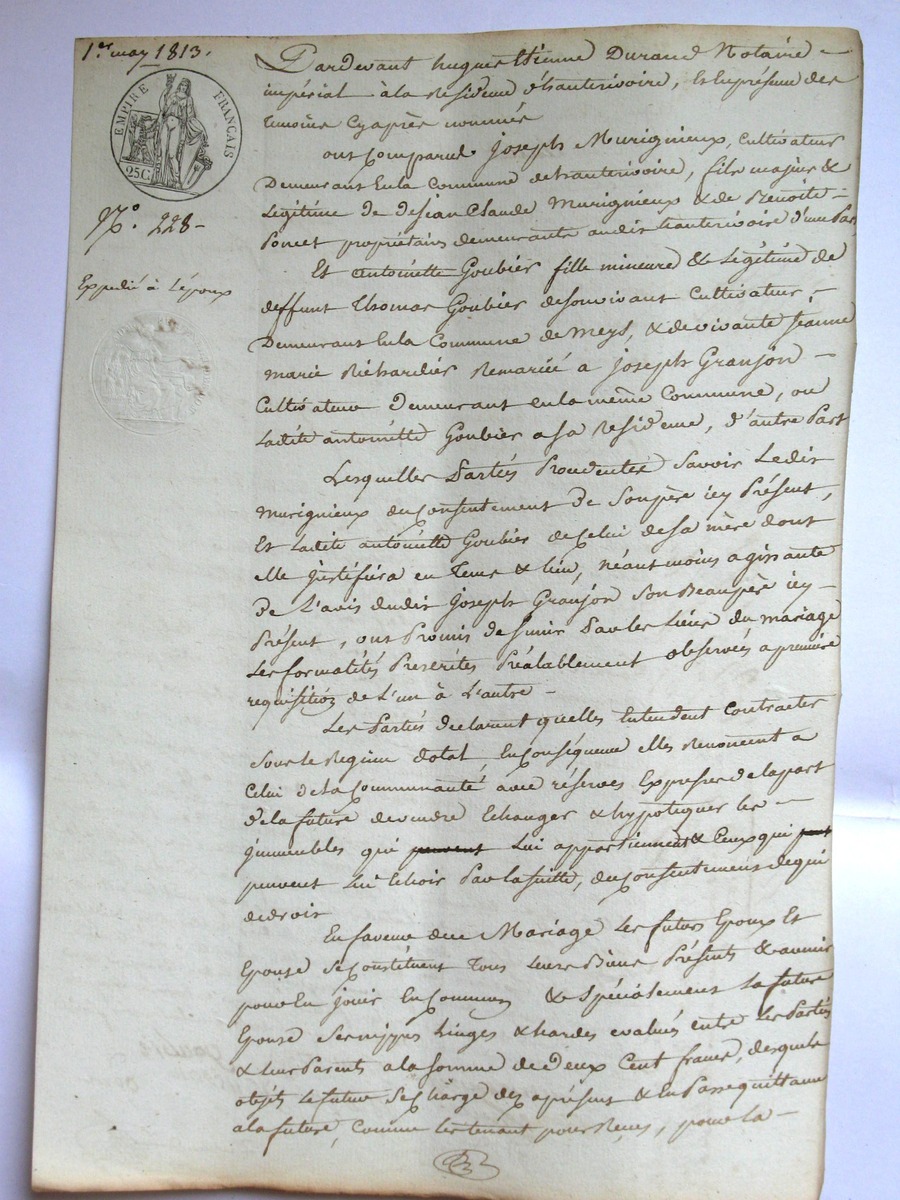 1er may 1813.
EMPIRE FRANÇAIS
25C
N° 228-
Expedié à l'époux
Pardevant hugues Etienne Durand Notaire
impérial à la Residence d'hauterivoire, Et En présence des
temoins Cyaprès nommés
ont Comparu Joseph Murigneux, cultivateur
Demeurant En la Commune de hauterivoire, fils majeur &
Legitime de Jean Claude Murigneux & de Benoite
Poncet propriétaires demeurants audit hauterivoire d'une Part
Et antoinette Goubier fille mineure & Légitime de
deffunt Thomas Goubier de son vivant Cultivateur,
Demeurant En la Commune de Meys, & de vivante Jeanne
marie Richardier Remariée a Joseph Granjon
Cultivateur Demeurant en la même Commune, ou
Ladite antoinette Goubier a sa Residence, d'autre Part
Lesquelles Parties Procedantes Savoir Ledit
Murigneux du Consentement de Son père icy Présent,
Et Ladite antoinette Goubier de Celui de sa mère dont
elle justifiera en tems & lieu, néantmoins agissante
De L'avis dudit Joseph Granjon Son Beaupère icy
Présent, ont Promis de s'unir Par les Liens du mariage
Les formalités Prescrites Préalablement observées a première
requisition de L'un à L'autre
Les Parties déclarent quelles Entendent Contracter
Sous le Regime dotal, En Conséquence elles Renoncent a
Celui de la Communauté avec réserves Expresses de la part
de la future de vendre Echanger & hypotequer les
immeubles qui peuvent Lui appartiennent & Ceux qui
peuvent Lui Echoir Par la suitte, du Consentement de qui
de droit
En faveur du Mariage Les futurs Epoux Et
Epouse Se Constituent Tous Leurs Biens Présents & avenir
pour En jouir En Commun & Spécialement La future
Epouse Ses nippes Linges & hardes evalués entre Les Parties
& leur Parents a la somme de Deux Cent francs, desquels
objets Le futur Se Charge des aprésent & En Passe quittance
a la future, Comme les tenant pour Reçus, pour la